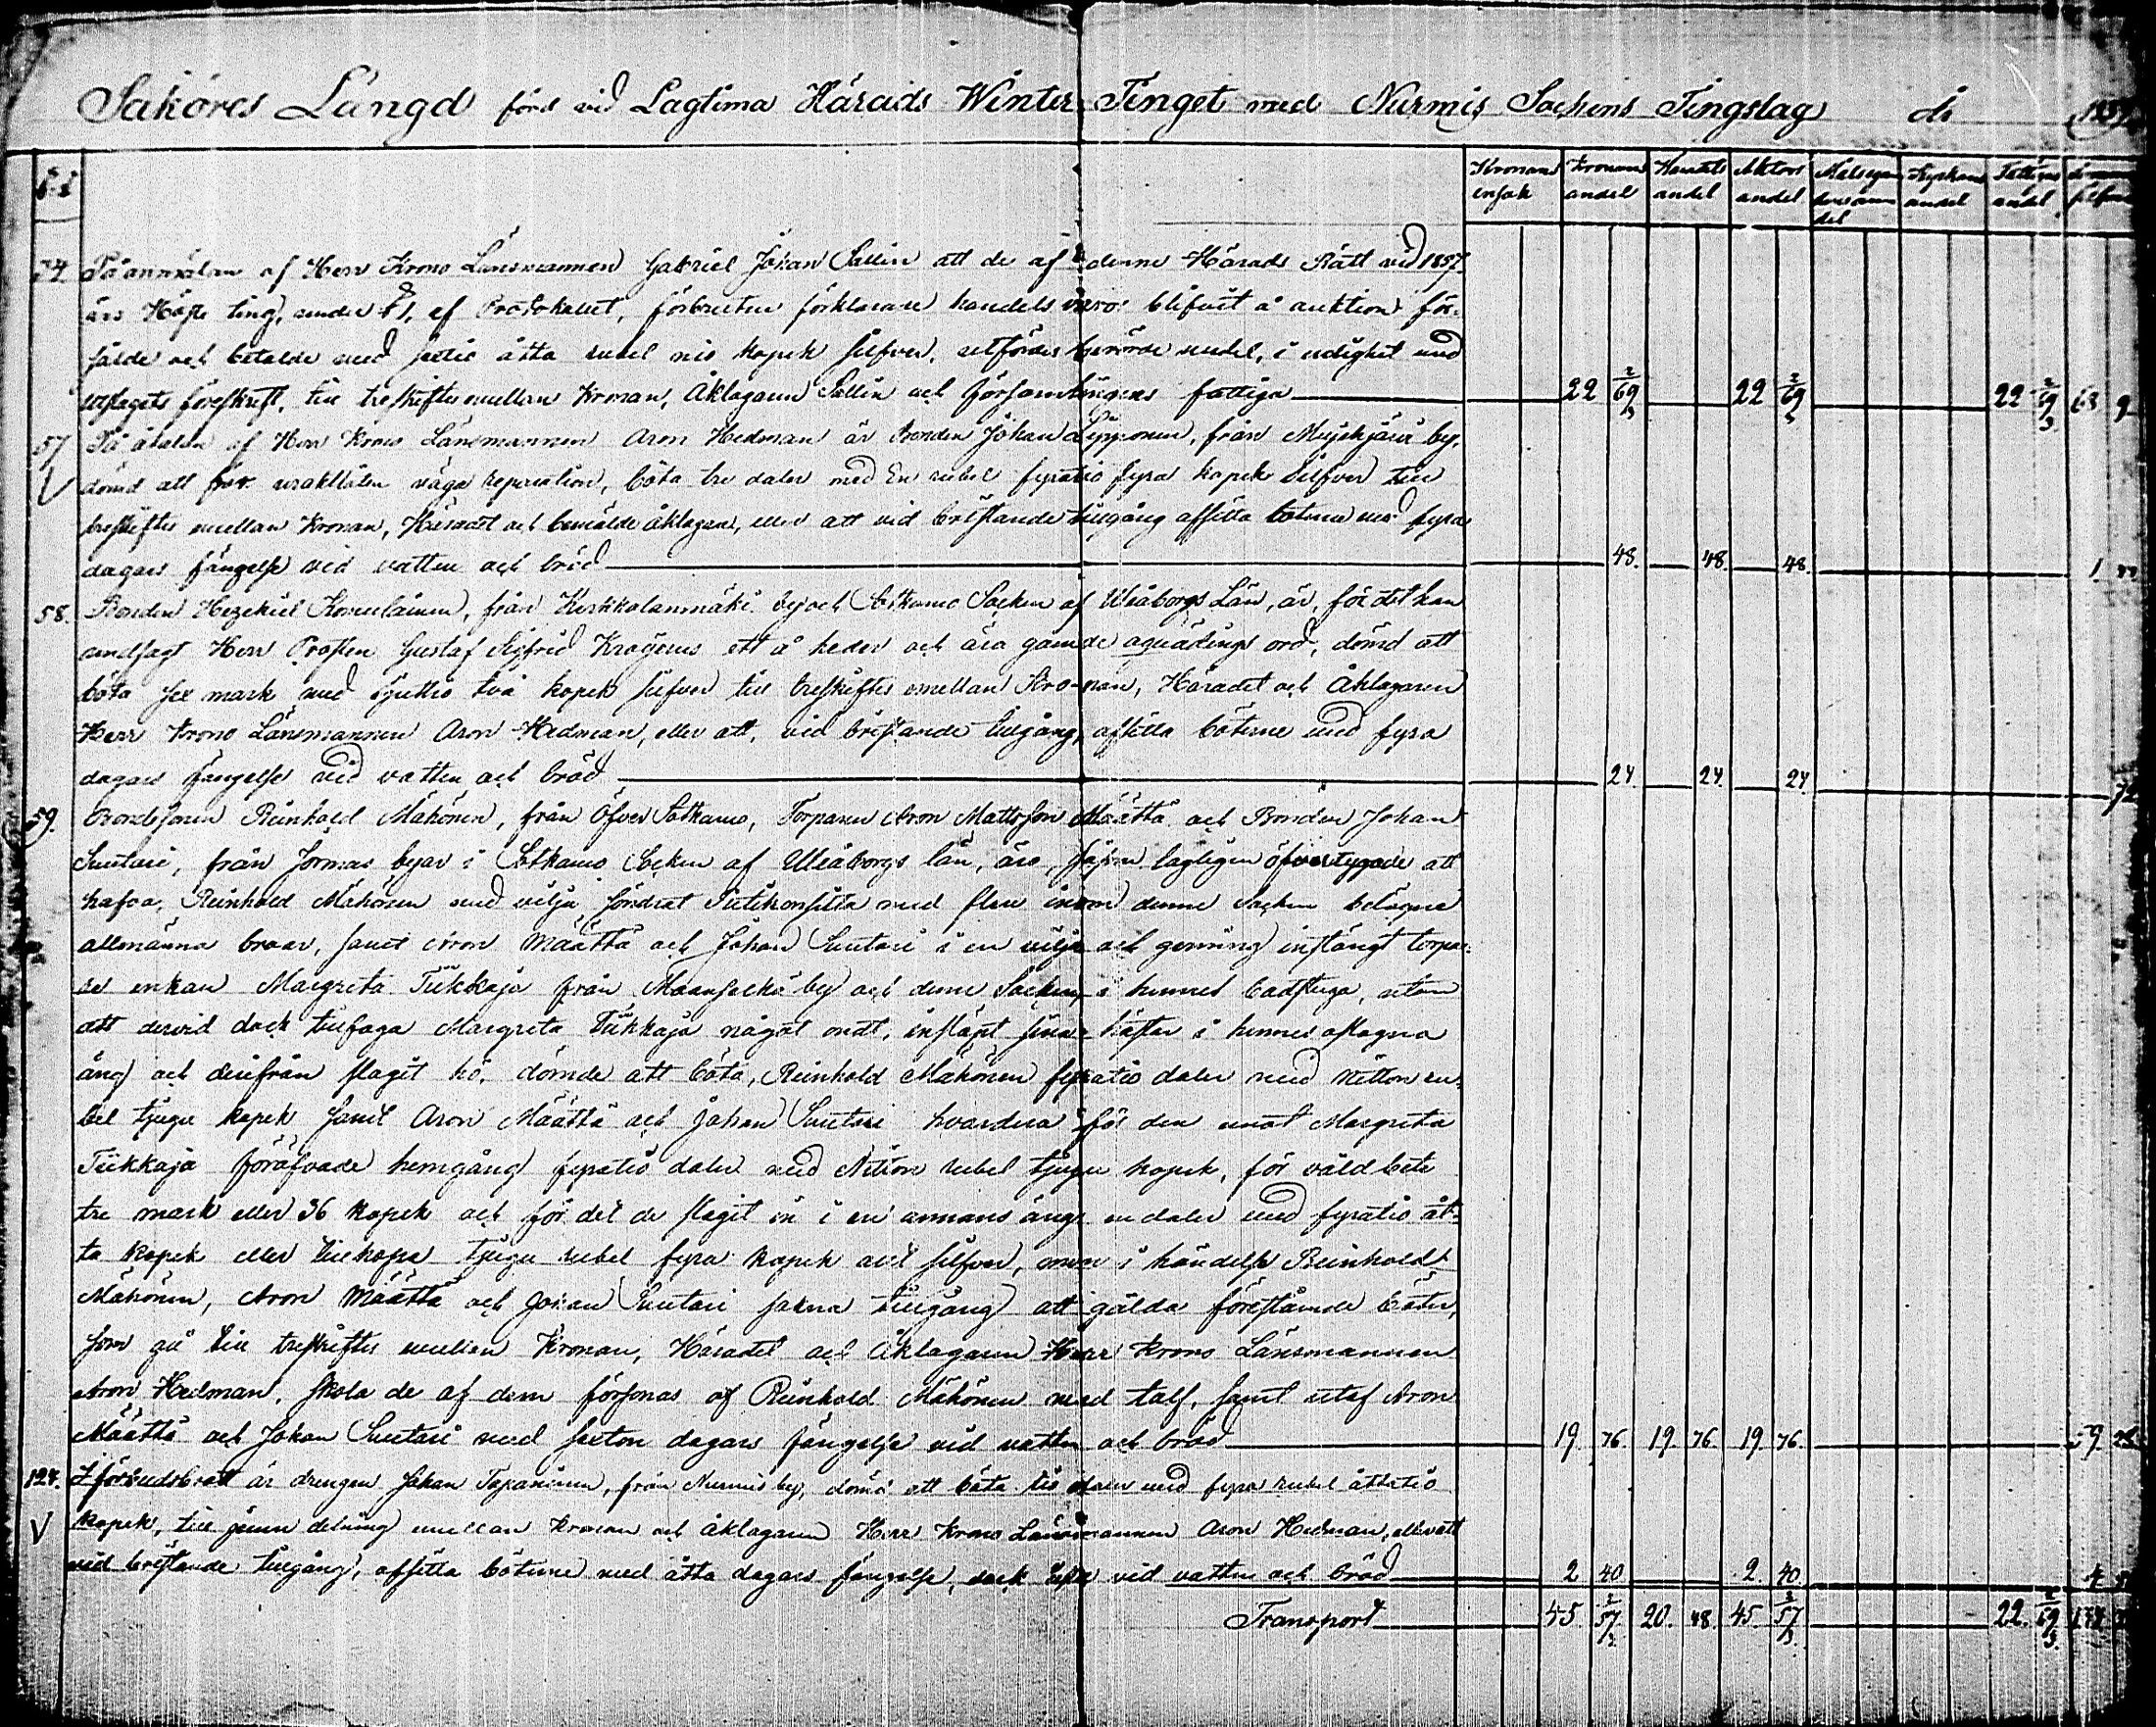 Saköres Längd förd vid Lagtima Härads Winter Tinget med Nurmis Sockens Tingslag år 1857
§§ Kronans ensak Kronans andel Häradets andel Aktors andel Målsegandens andel Kyrkans andel Fattigas andel Summa silfver
54. På anmälan af Herr Krono Länsmannen Gabriel Johan Sallin att de af denne Härads Rätt vid 1857
års Höste ting, under § 1, af Protokollet, förbrutne förklarade handels varor blifvit å auktion för-
sålde och betalde med sextio åtta rubel nio kopek silfver, utfördes berörde medel, i enlighet med
utslagets föreskrift, till treskiftes emellan Kronan, Åklagaren Sallin och församlingens fattiga 22 69 2/3 22 69 2/3 22 69 2/3 68 9
57 På åtalan af Herr Krono Länsmannen Aron Hedman är Bonden Johan Lipponen, från Mujejärvi by,
dömd att för uraktlåten väga reparation, böta tre daler med En rubel fyratio fyra kopek Silfver till
treskiftes emellan Kronan, Häradet och bemälde åklagare, eller att vid bristande tillgång afsitta böterne med fyra
dagars fängelse vid vatten och bröd 48. 48. 48. 1
58. Bonden Hezekiel Komulainen, från Korkkolanmäki by och Sotkamo Socken af Uleåborgs Län, är, för det han
undsagt Herr Prosten Gustaf Sigfrid Krogerus ett å heder och ära gående oqvädings ord, dömd att
böta sex mark med sjuttio två kopek silfver till treskiftes emellan Kronan, Häradet och Åklagaren
Herr Krono Länsmannen Aron Hedman, eller att, vid bristande tillgång, afsitta böterne med fyra
dagars fängelse vid vatten och bröd 24. 24. 24. 72
59. Bondesonen Reinhold Mähönen, från Öfver Sotkamo, Torparen Aron Mattsson Määttä och Bonden Johan
Suutari, från Jormas byar i Sotkamo Socken af Uleåborgs län, äro lagligen öfvertygade att
hafva, Reinhold Mähönen med vilja söndrat med flere inom denne Socken belägne
allmänna broar, samt Aron Määttä och Johan Suutari i en vilja och gerning instängt torpa-
re enkan Margreta Tiikkaja från Maanselkä by och denne Socken i hennes badstuga, utan
att dervid dock tillfoga Margreta Tiikkaja något ondt, insläpt sina hästar i hennes aflagna
äng och derifrån slagit hö, dömde att böta, Reinhold Mähönen fyratio daler med Nitton ru-
bel tjugu kopek samt Aron Määttä och Johan Suutari hvardera för den emot Margreta
Tiikkaja föröfvade hemgång fyratio daler med Nitton rubel tjugu kopek, för våld
tre mark eller 36 kopek och för det de slagit in i en annans äng en daler med fyratio åt-
ta kopek eller tillhopa tjugu rubel fyra kopek allt silfver, men i händelse Reinhold
Mähönen, Aron Määttä och Johan Suutari sakna tillgång att gälda föreståmde böter,
som gå till treskiftes emellan Kronan, Häradet och Åklagaren Herr Krono Länsmannen
Aron Hedman, skola de af dem försonas af Reinhold Mähönen med tolf, samt utaf Aron
Määttä och Johan Suutari med sexton dagars fängelse vid vatten och bröd 19. 76. 19. 76. 19 76. 59 28
124. är drengen Johan Tapaninen, från Nurmis by, dömd att böta tio daler med fyra rubel åttatio
V kopek, till jemn delning emellan Kronan och åklagaren Herr Krono Länsmannen Aron Hedman, eller att
vid bristande tillgång, afsitta böterne med åtta dagars fängelse, vid vatten och bröd 2 40 2. 40. 4
Transport 45. 57 2/3 20. 48. 45. 57 2/3 22. 69 2/3